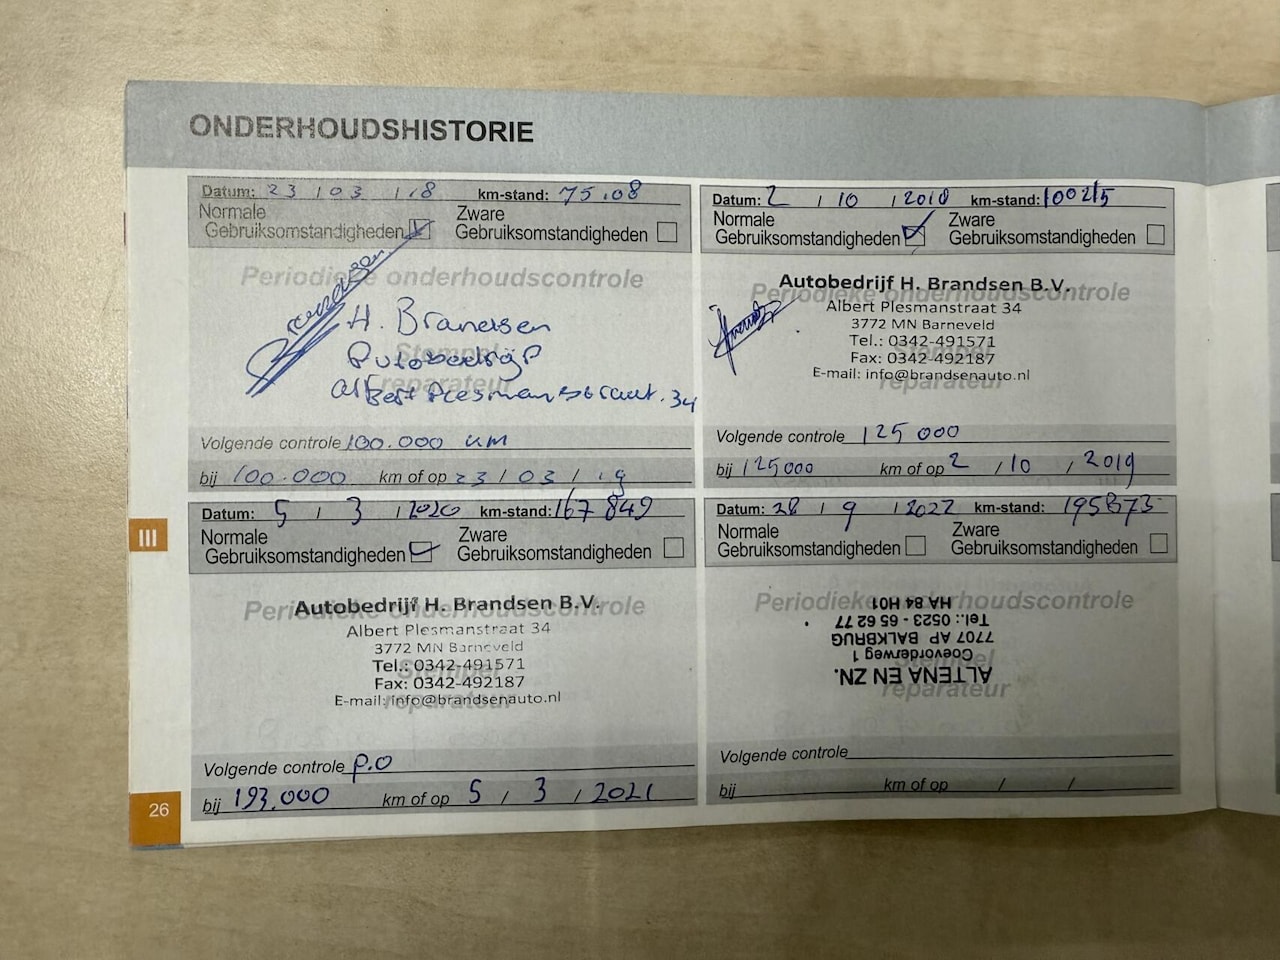 ONDERHOUDSHISTORIE
Datum: 23 / 03 / 18 km-stand: 75.08
Normale
Gebruiksomstandigheden
Zware
Gebruiksomstandigheden
Periodieke onderhoudscontrole
H. Brandsen
Autobedrijf
Albert Plesmanstraat. 34
Stempel
reparateur
Volgende controle 100.000 km
bij 100.000 km of op 23 / 03 / 19
Datum: 2 / 10 / 2018 km-stand: 100215
Normale
Gebruiksomstandigheden
Zware
Gebruiksomstandigheden
Periodieke onderhoudscontrole
Autobedrijf H. Brandsen B.V.
Albert Plesmanstraat 34
3772 MN Barneveld
Tel.: 0342-491571
Fax: 0342-492187
E-mail: info@brandsenauto.nl
reparateur
Volgende controle 125 000
bij 125000 km of op 2 / 10 / 2019
III
Datum: 5 / 3 / 2020 km-stand: 167 849
Normale
Gebruiksomstandigheden
Zware
Gebruiksomstandigheden
Periodieke onderhoudscontrole
Autobedrijf H. Brandsen B.V.
Albert Plesmanstraat 34
3772 MN Barneveld
Tel.: 0342-491571
Fax: 0342-492187
E-mail: info@brandsenauto.nl
Stempel
reparateur
Volgende controle P.O
bij 193.000 km of op 5 / 3 / 2021
Datum: 28 / 9 / 2022 km-stand: 195873
Normale
Gebruiksomstandigheden
Zware
Gebruiksomstandigheden
Periodieke onderhoudscontrole
Stempel
reparateur
ALTENA EN ZN.
Coevorderweg 1
7707 AP BALKBRUG
Tel.: 0523 - 65 62 77
HA 84 H01
Volgende controle
bij km of op / /
26